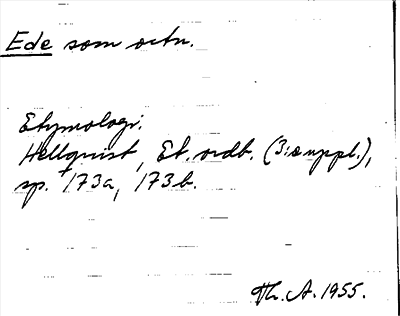 Ede som ortn.
Etymologi.
Hellquist, Et. ordb. (3:e uppl.),
sp. 173a, 173b.
Th. A. 1955.